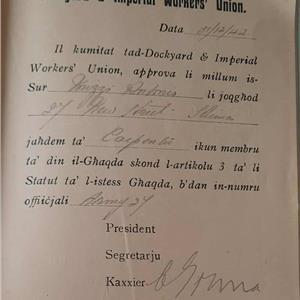 Dockyard & Imperial Workers' Union.
Data 01/12/42
Il kumitat tad-Dockyard & Imperial
Workers' Union, approva li millum is-
Sur Andrews li joqghod
27 New Street - Sliema
jahdem ta' Carpenter ikun membru
ta' din il-Ghaqda skond l-artikolu 3 ta' li
Statut ta' l-istess Ghaqda, b'dan in-numru
offiċjali Army 27
President
Segretarju
Kaxxier